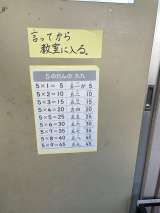 言ってから
教室に入る。
5のだんの九九
5×1=5 五一が 5
5×2=10 五二 10
5×3=15 五三 15
5×4=20 五四 20
5×5=25 五五 25
5×6=30 五六 30
5×7=35 五七 35
5×8=40 五八 40
5×9=45 五九 45